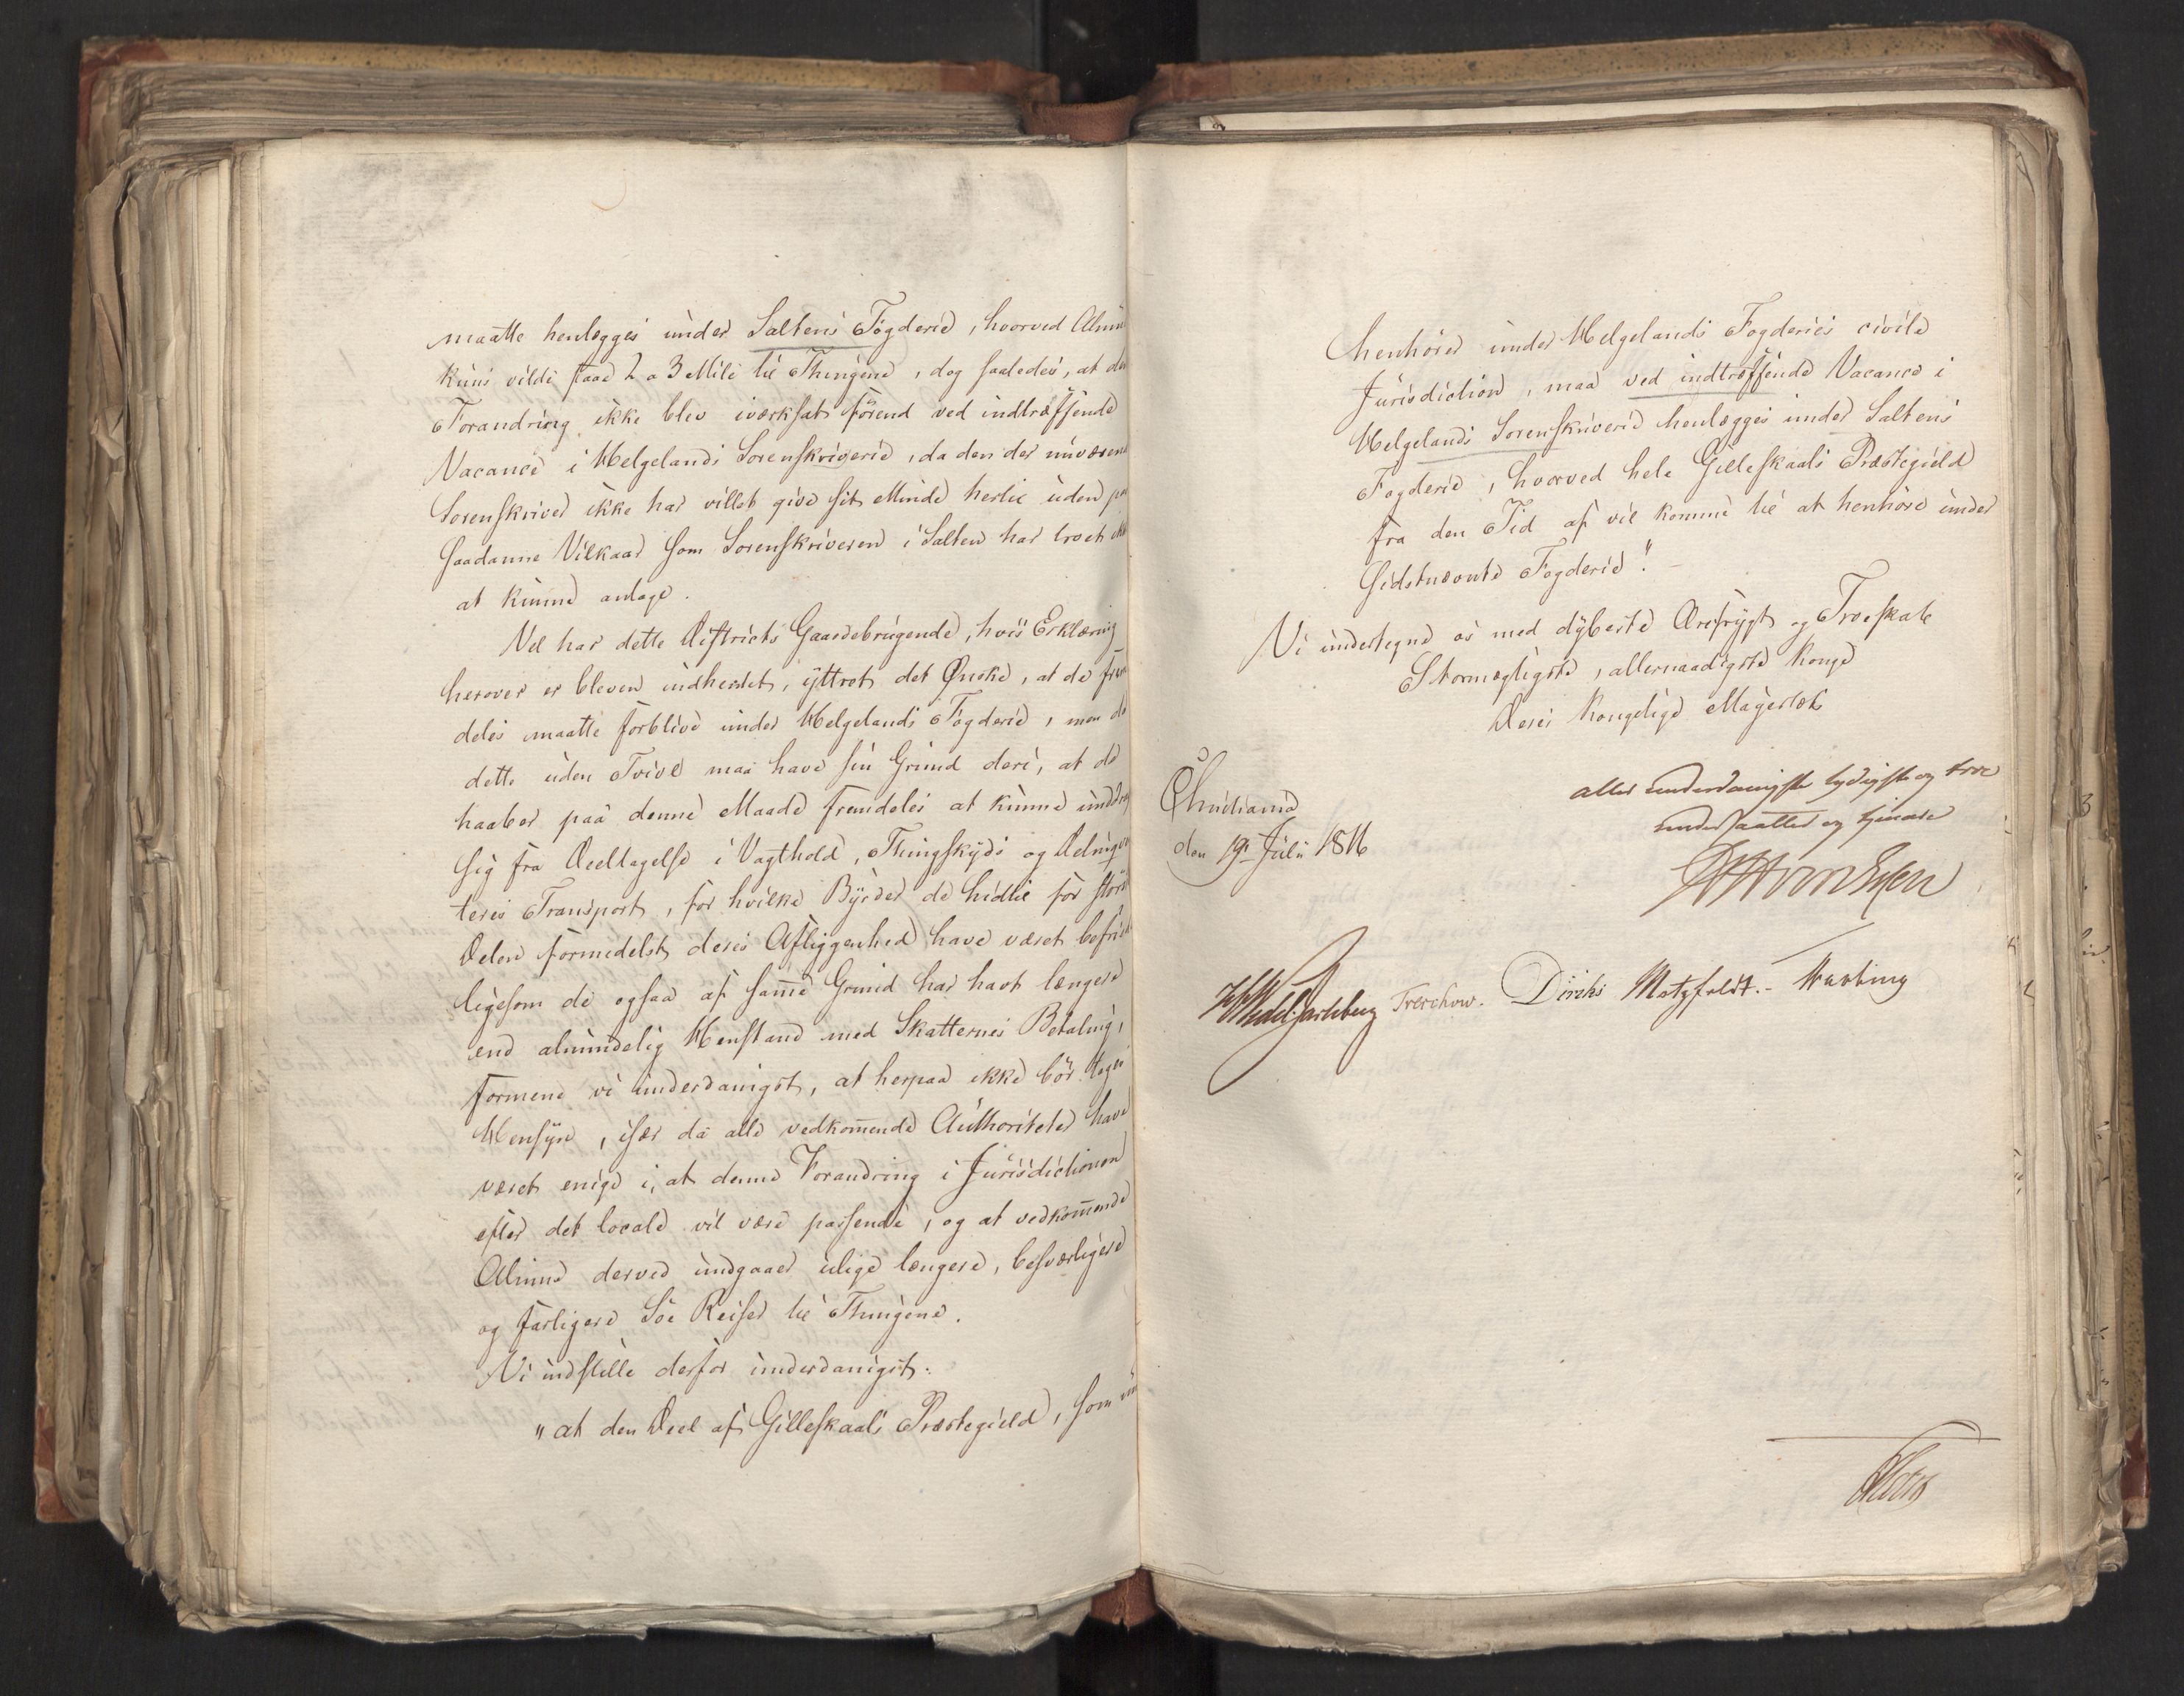 maatte henlægges under Saltens Fogderie, hvorved Almu
kuns vilde faae 2 a 3 Mile til Thingene, dog saaledes, at den
Forandring ikke blev iværksat förend ved indtræffende
Vacance i Helgelands Sorenskriverie, da den der nuværend
Sorenskriver ikke har villet give sit Minde hertil uden paa
saadanne Vilkaar som Sorenskriveren i Salten har troet ikke
at kunne antage.
Vel har dette Districts Gaardebrugende, hvis Erklæring
herover er bleven indhentet, yttret det Ønske, at de frem
deles maatte forblive under Helgelands Fogderie, men da
dette uden Tvivl maa have sin Grund deri, at de
haaber paa denne Maade fremdeles at kunne unddrag
sig fra Deeltagelse i Vagthold, Thingskyds og Delinqven
ters Transport, for hvilke Byrder de hidtil for störst
Delen formedelst deres Afliggenhed have været befriede
ligesom de ogsaa af samme Grund har havt længere
end almindelig Henstand med Skatternes Betaling,
formene vi underdanigst, at herpaa ikke bör tages
Hensyn, især da alle vedkommende Authoriteter have
været enige i, at denne Forandring i Jurisdictionen
efter det locale vil være passende, og at vedkommende
Almue derved undgaaer ulige længere, besværligere
og farligere Söe Reiser til Thingene.
Vi indstille derfor underdanigst:
"at den Deel af Gilleskaals Præstegield, som nu
henhörer under Helgelands Fogderies civile
Jurisdiction, maa ved indtræffende Vacance i
Helgelands Sorenskriverie henlægges under Saltens
Fogderie, hvorved hele Gilleskaals Præstegield
fra den Tid af vil komme til at henhöre under
sidstnævnte Fogderie".
Vi undertegne os med dybeste Ærefrygt og Troeskab
Stormægtigste, allernaadigste Konge
Deres Kongelige Majestæts
Christiania
den 19de Julii 1816
aller underdanigste lydigste og troe
undersaatter og tjenere
Wedel Jarlsberg Treschow. Diriks Motzfeldt.- Krebting